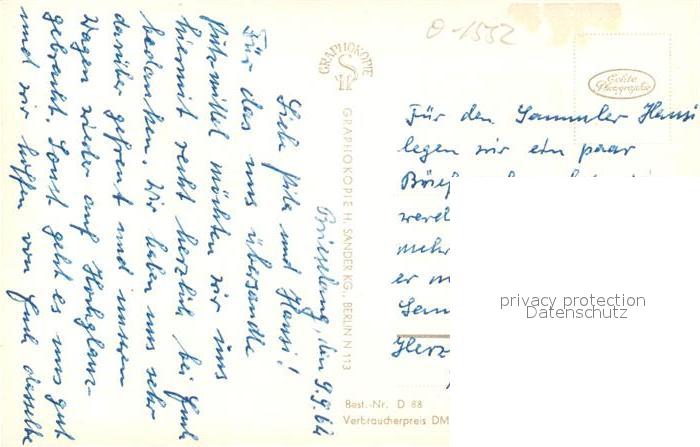 O-1552
GRAPHOKOPIE
Echte
Photographie
GRAPHOKOPIE H. SANDER KG., BERLIN N 113
Best.-Nr. D 88
Verbraucherpreis DM
den 9.9.64
Liebe Gita und Hansi!
Für das uns übersandte
Putzmittel möchten wir uns
hiermit recht herzlich bei Euch
bedanken. Wir haben uns sehr
darüber gefreut und unseren
Wagen wieder auf Hochglanz
gebracht. Sonst geht es uns gut
und wir hoffen von Euch dasselbe
Für den Sammler Hansi
legen wir ein paar
Brief
werd
mehr
er m
Sam
Herz
privacy protection
Datenschutz